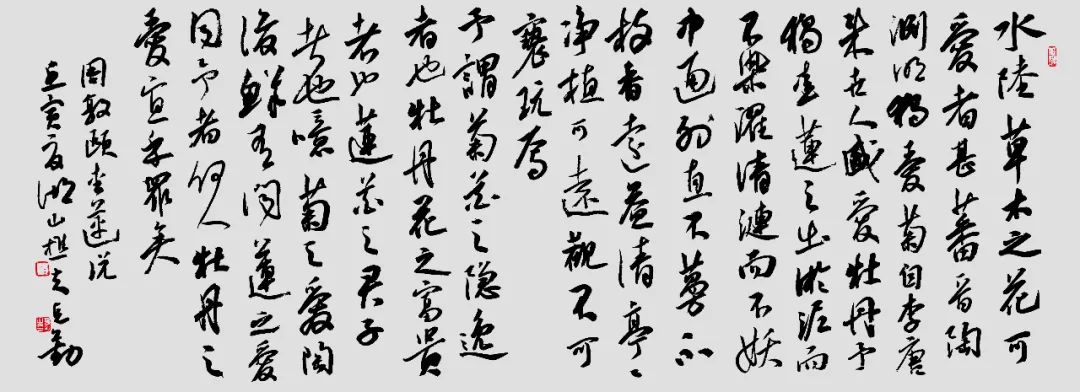 水陸草木之花可
愛者甚蕃晉陶
淵明獨愛菊自李唐
来世人盛愛牡丹予
獨愛蓮之出淤泥而
不染濯清漣而不妖
中通外直不蔓不
枝香遠益清亭〻
净植可遠觀不可
褻玩焉
予謂菊花之隐逸
者也牡丹花之富貴
者也蓮花之君子
者也噫菊之愛陶
後鮮有聞蓮之愛
同予者何人牡丹之
愛宜乎眾矣
周敦頤愛蓮说
壬寅夏湖山樵夫